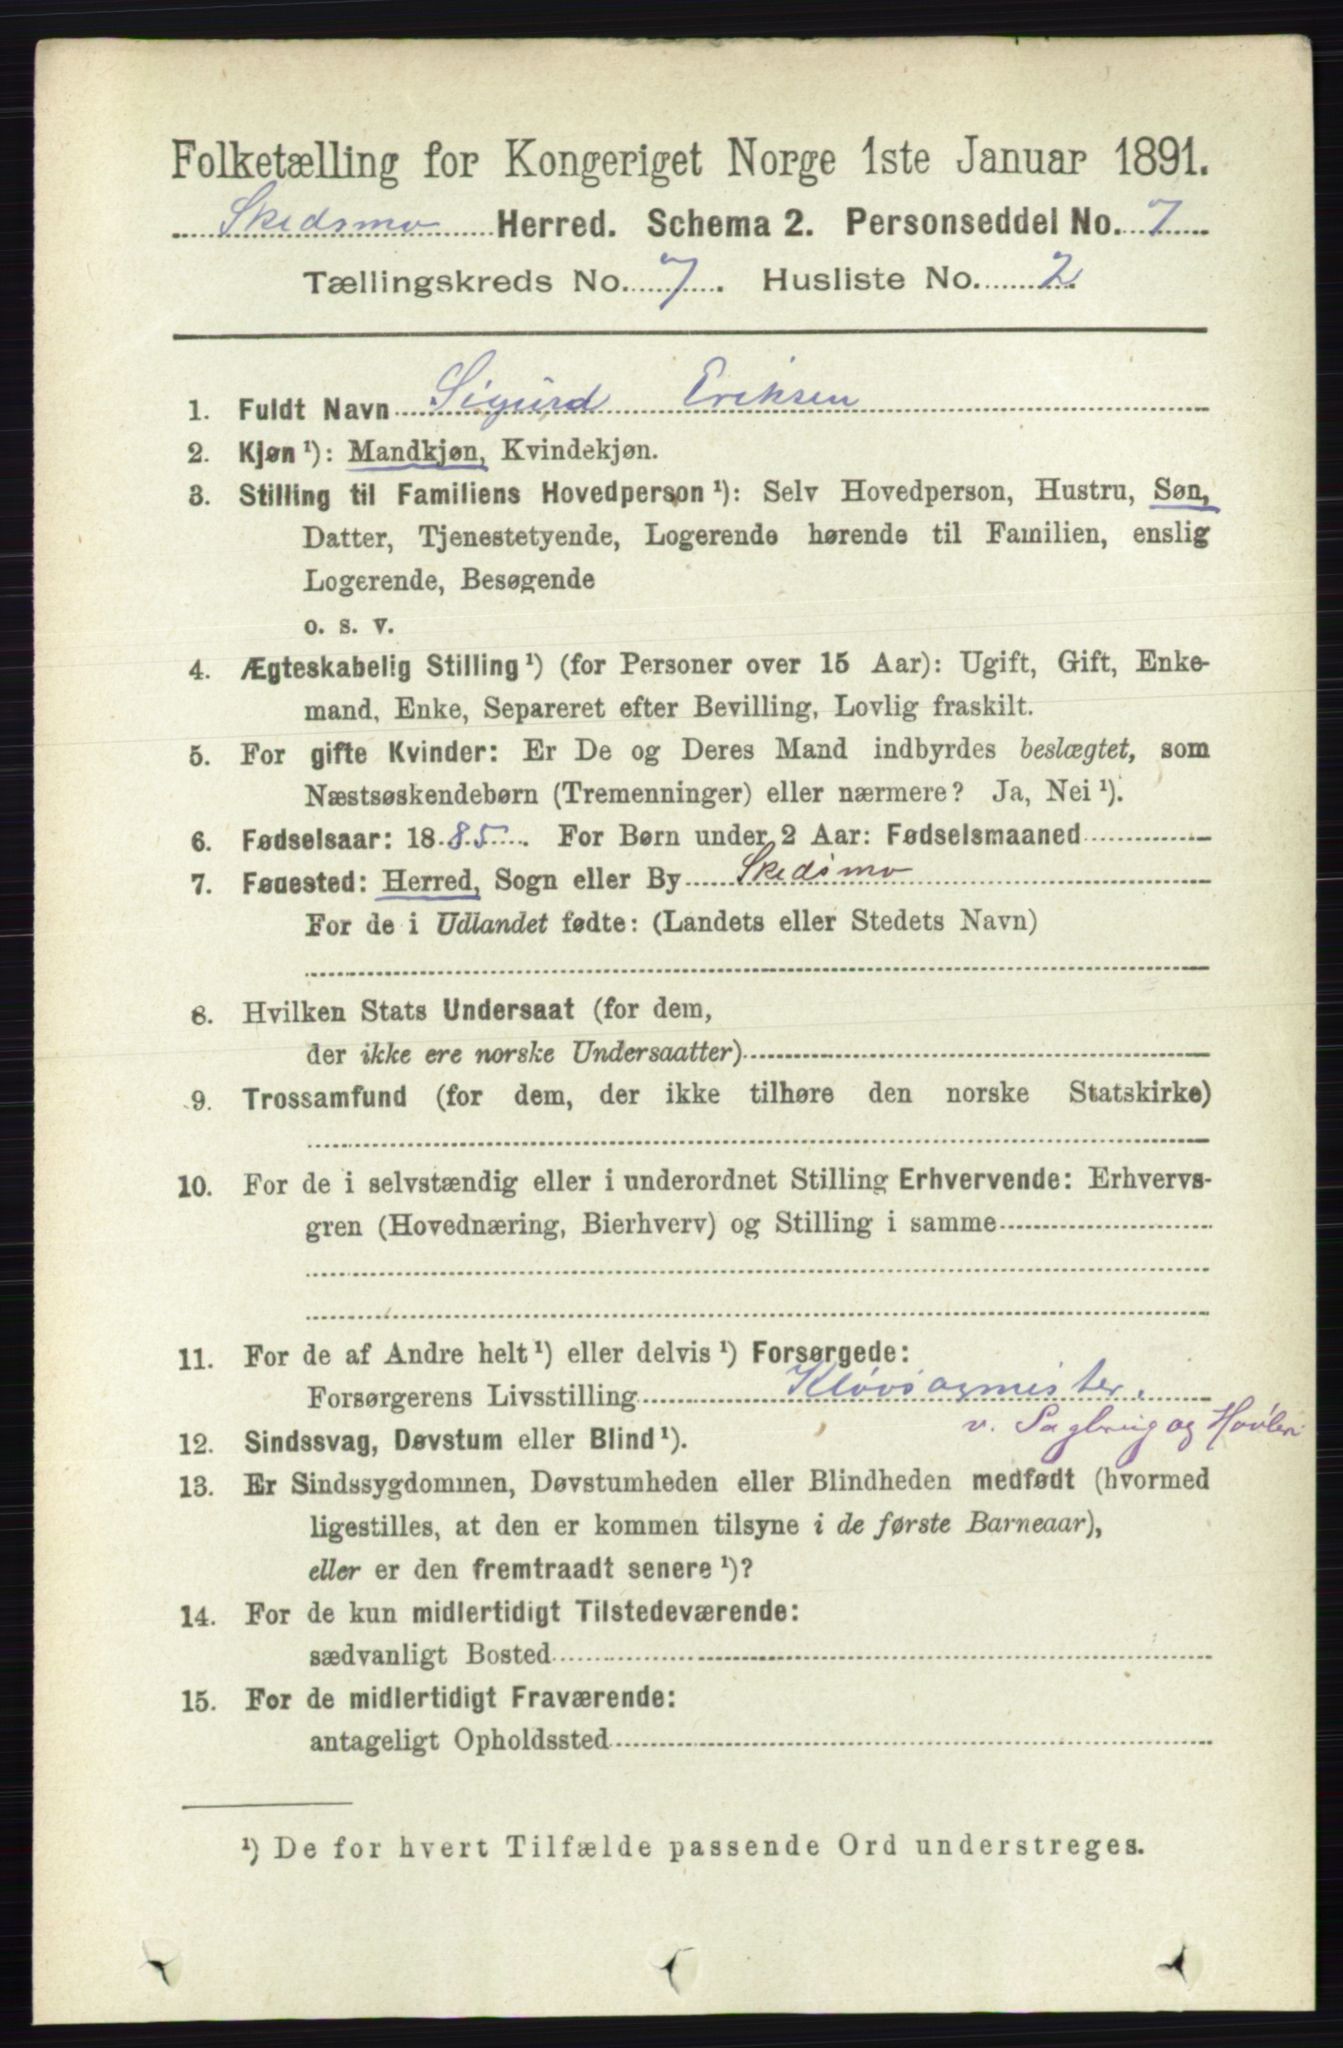 Folketælling for Kongeriget Norge 1ste Januar 1891.
Skedsmo Herred. Schema 2. Personseddel No. 7
Tællingskreds No. 7. Husliste No. 2
1. Fuldt Navn Sigurd Eriksen
2. Kjøn ¹): Mandkjøn, Kvindekjøn.
3. Stilling til Familiens Hovedperson ¹): Selv Hovedperson, Hustru, Søn,
Datter, Tjenestetyende, Logerende hørende til Familien, enslig
Logerende, Besøgende
o. s. v.
4. Ægteskabelig Stilling ¹) (for Personer over 15 Aar): Ugift, Gift, Enke-
mand, Enke, Separeret efter Bevilling, Lovlig fraskilt.
5. For gifte Kvinder: Er De og Deres Mand indbyrdes beslægtet, som
Næstsøskendebørn (Tremenninger) eller nærmere? Ja, Nei ¹).
6. Fødselsaar: 1885. For Børn under 2 Aar: Fødselsmaaned
7. Føuested: Herred, Sogn eller By Skedsmo
For de i Udlandet fødte: (Landets eller Stedets Navn)
8. Hvilken Stats Undersaat (for dem,
der ikke ere norske Undersaatter)
9. Trossamfund (for dem, der ikke tilhøre den norske Statskirke)
10. For de i selvstændig eller i underordnet Stilling Erhvervende: Erhvervs-
gren (Hovednæring, Bierhverv) og Stilling i samme
11. For de af Andre helt ¹) eller delvis ¹) Forsørgede:
Forsørgerens Livsstilling Kløvsagmister.
v. Sagbrug og Høvleri
12. Sindssvag, Døvstum eller Blind ¹).
13. Er Sindssygdommen, Døvstumheden eller Blindheden medfødt (hvormed
ligestilles, at den er kommen tilsyne i de første Barneaar),
eller er den fremtraadt senere ¹)?
14. For de kun midlertidigt Tilstedeværende:
sædvanligt Bosted
15. For de midlertidigt Fraværende:
antageligt Opholdssted
¹) De for hvert Tilfælde passende Ord understreges.